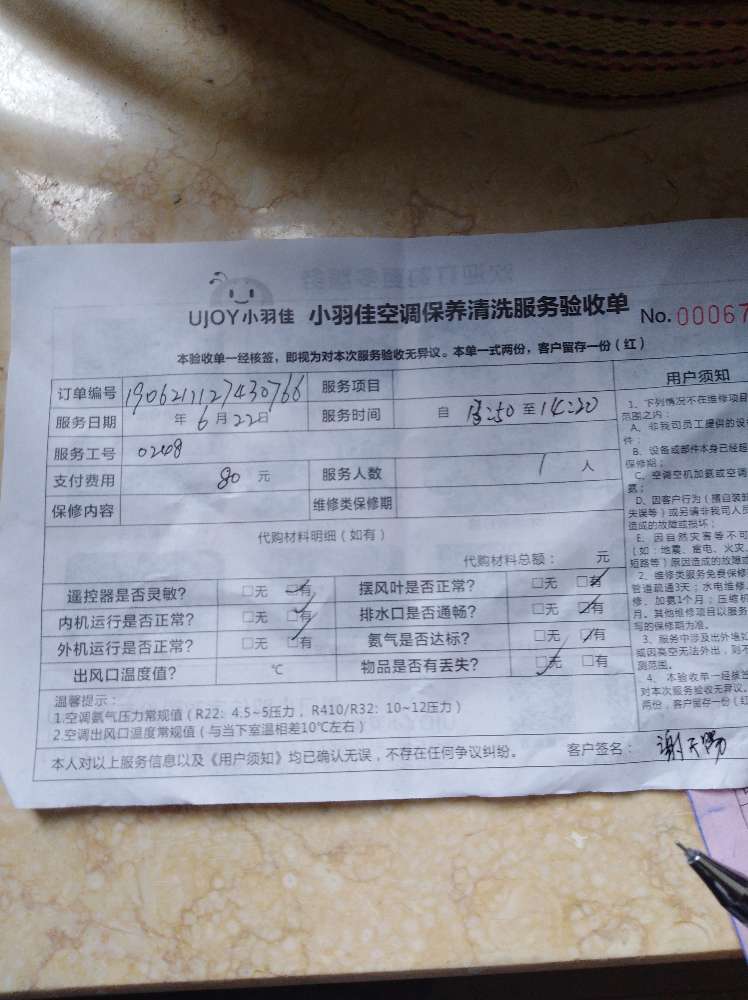 UJOY小羽佳 小羽佳空调保养清洗服务验收单 No.00067
本验收单一经核签，即视为对本次服务验收无异议。本单一式两份，客户留存一份（红）
订单编号 1906211127430766 服务项目
服务日期 年6月22日 服务时间 自 13:50 至 14:20
服务工号 0208
支付费用 80 元 服务人数 1 人
保修内容 维修类保修期
代购材料明细（如有）
代购材料总额： 元
遥控器是否灵敏？ □无 □有 摆风叶是否正常？ □无 □有
内机运行是否正常？ □无 □有 排水口是否通畅？ □无 □有
外机运行是否正常？ □无 □有 氨气是否达标？ □无 □有
出风口温度值？ ℃ 物品是否有丢失？ □无 □有
温馨提示：
1.空调氨气压力常规值（R22：4.5~5压力，R410/R32：10~12压力）
2.空调出风口温度常规值（与当下室温相差10℃左右）
本人对以上服务信息以及《用户须知》均已确认无误，不存在任何争议纠纷。 客户签名： 谢天赐
用户须知
1、下列情况不在维修项目
范围之内：
A、非我司员工提供的设
件；
B、设备或部件本身已经超
保修期；
C、空调空机加氨或空调
氨；
D、因客户行为（擅自装卸
失误等）或另请非我司人员
造成的故障或损坏；
E、因自然灾害等不可
（如：地震、雷电、火灾、
短路等）原因造成的故障或
2、维修类服务免费保修
管道疏通3天；水电维修
修、加氨1个月；压缩机
月。其他维修项目以服务
写的保修期为准。
3、服务中涉及出外墙如
或因高空无法外出，则不
测范围。
4、本验收单一经核签
对本次服务验收无异议。
两份，客户留存一份（红